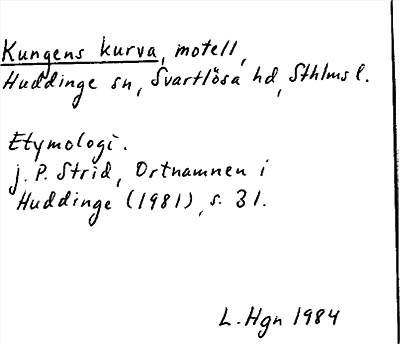 Kungens kurva, motell,
Huddinge sn, Svartlösa hd, Sthlms l.
Etymologi.
J. P. Strid, Ortnamnen i
Huddinge (1981), s. 31.
L. Hgn 1984